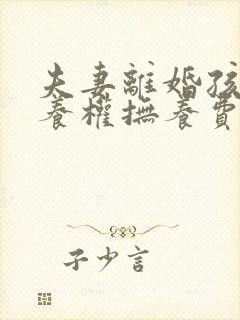 夫妻離婚孩
養權撫養費
子少言